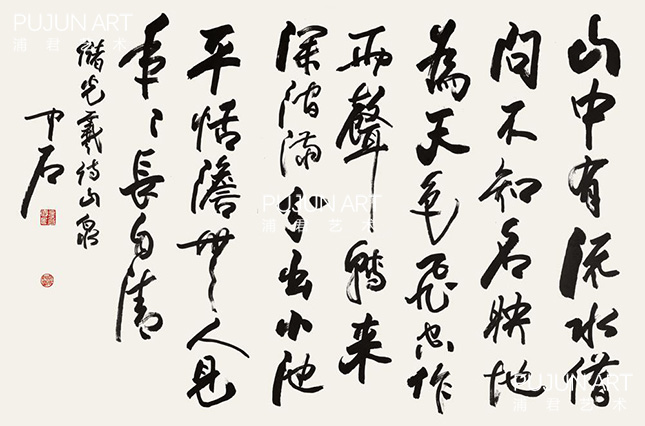 山中有流水借
问不知名映地
為天色飛空作
雨聲轉来
深澗滿分出小池
平恬澹無人見
年々長自清
儲光羲詩山泉
中石
PUJUN ART
浦君艺术
PUJUN ART
浦君艺术
PUJUN ART
浦君艺术